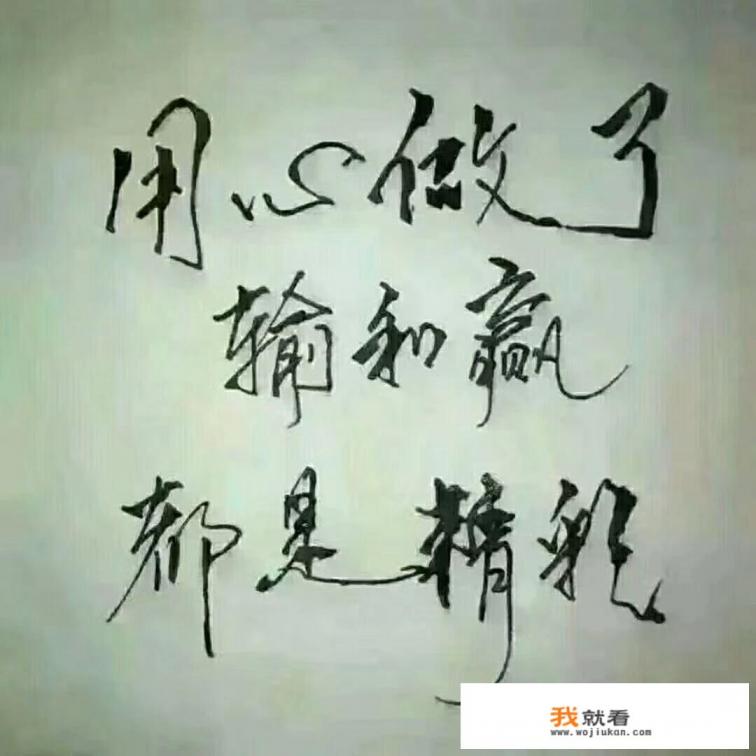 用心做了
输和赢
都是精彩
我就看
www.wojiukan.com